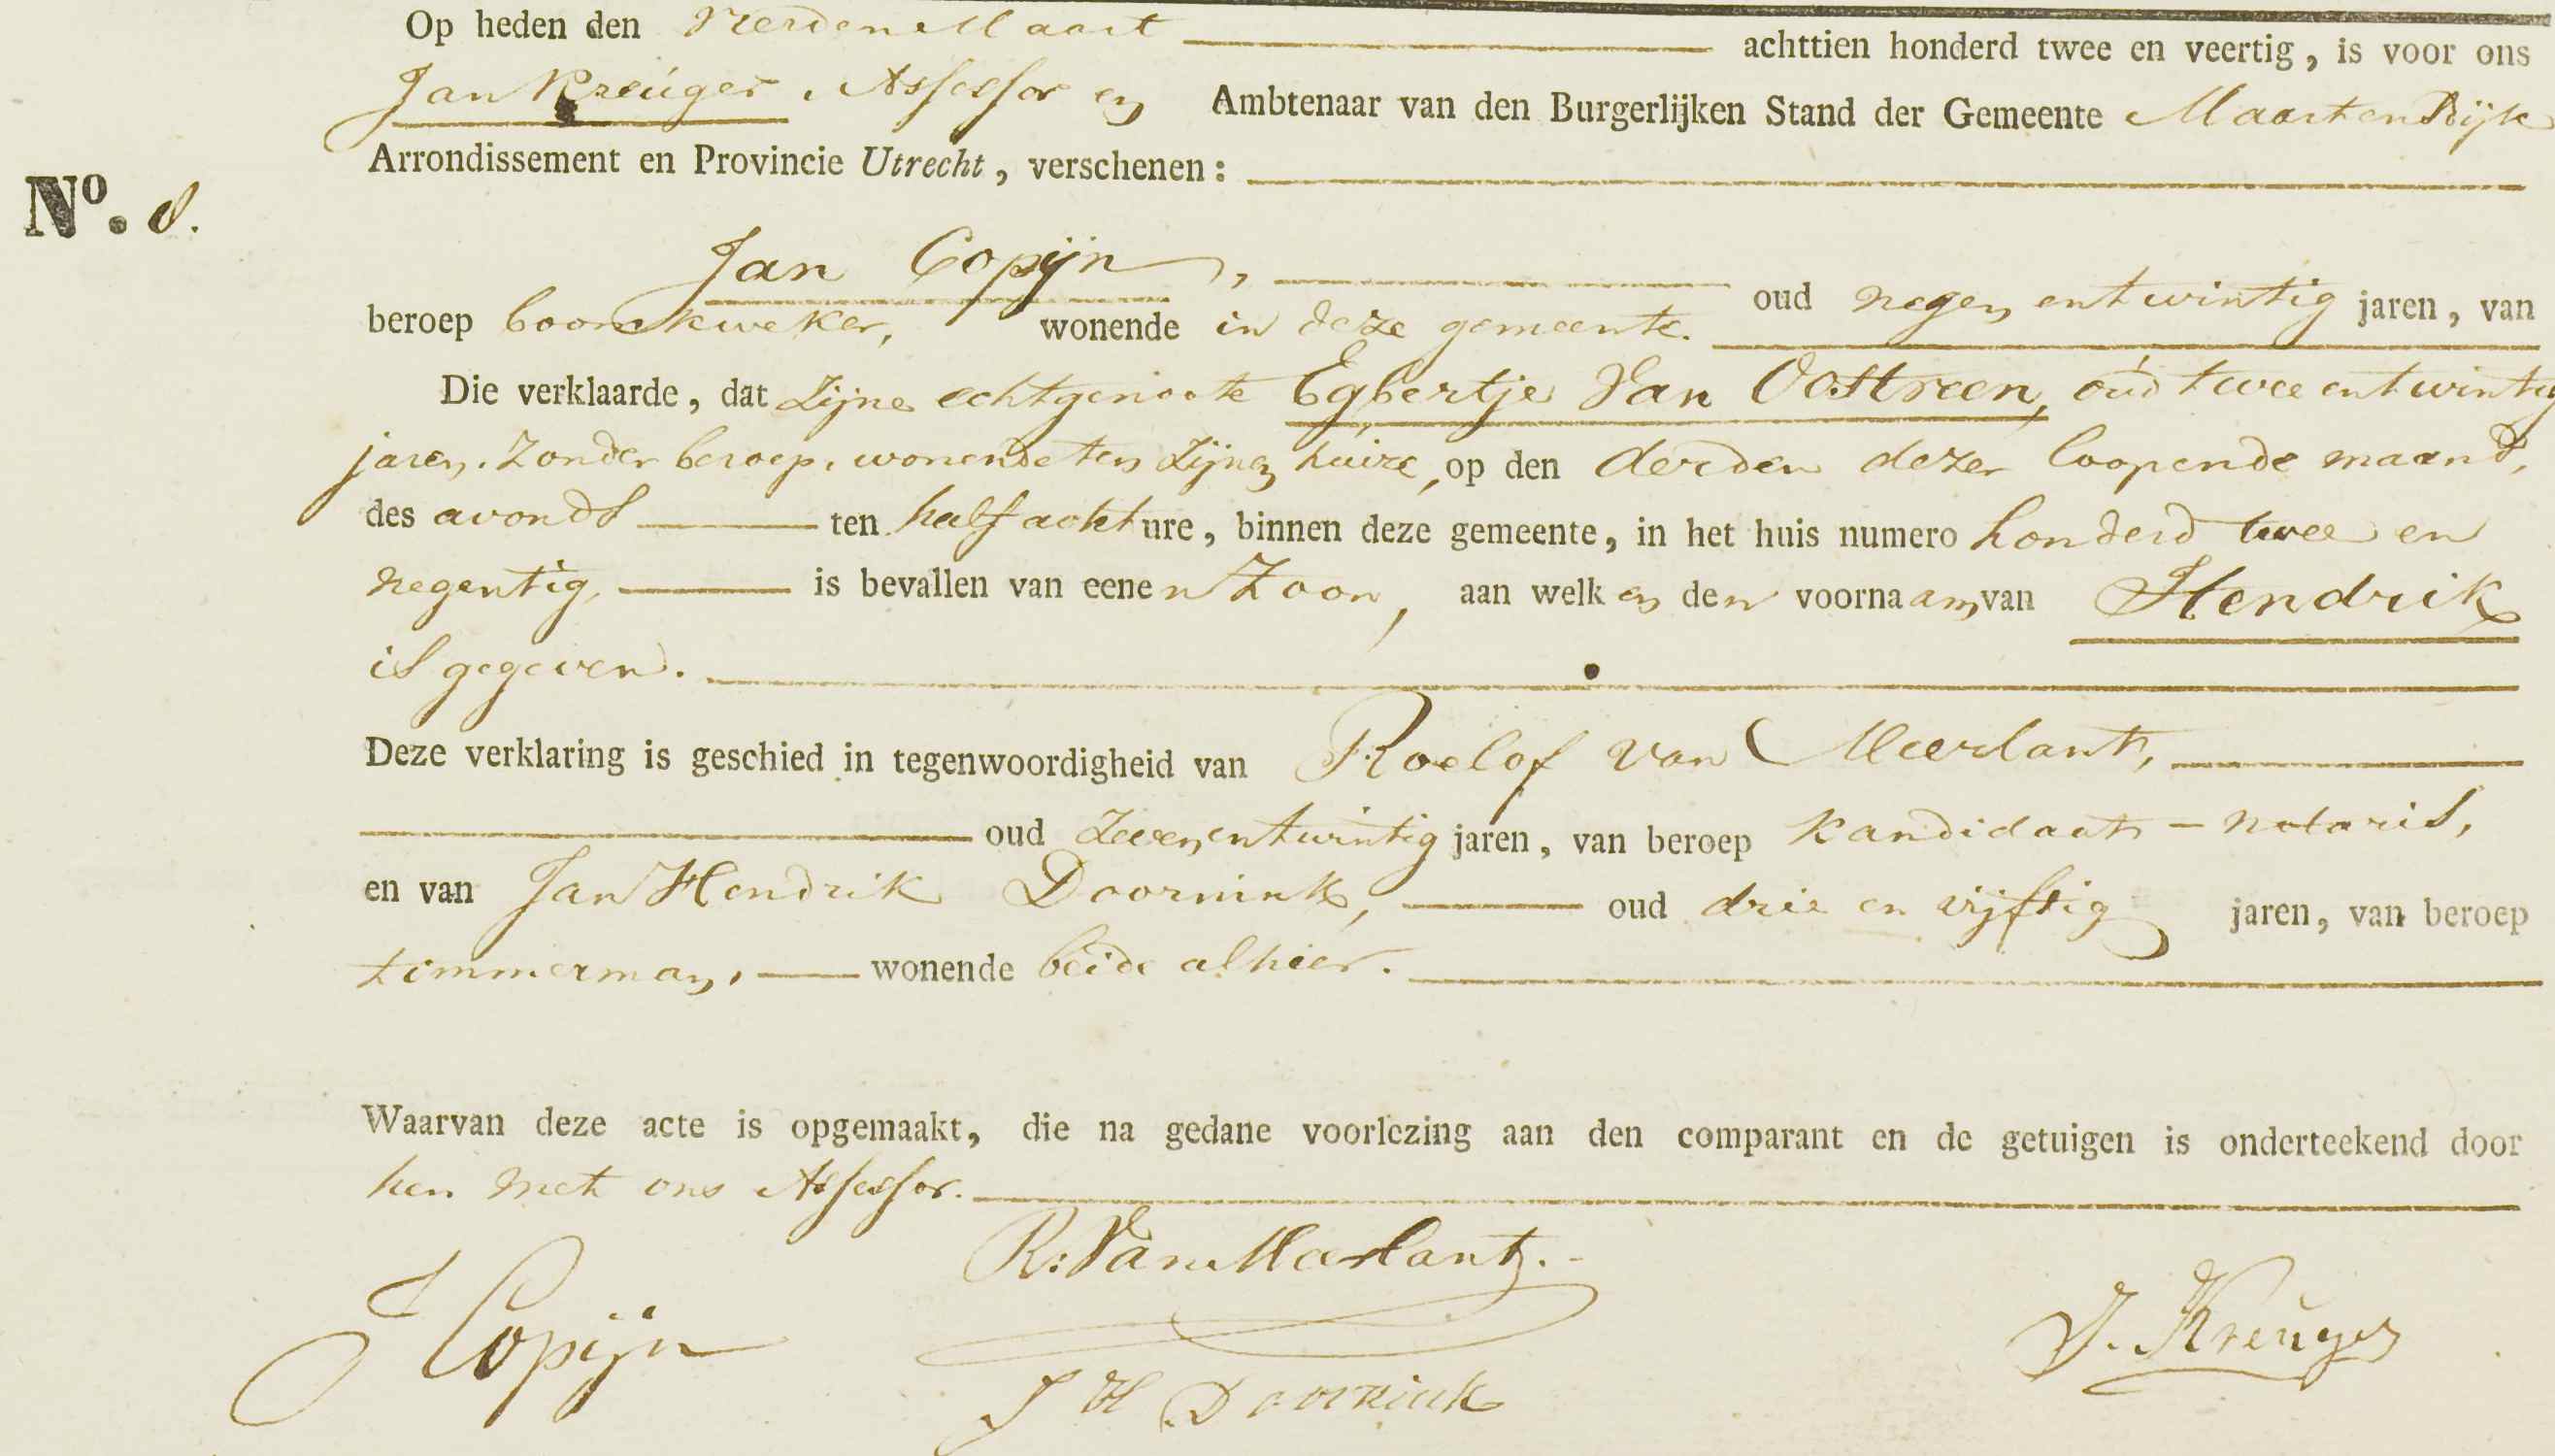 Op heden den vierden Maart achttien honderd twee en veertig, is voor ons
Jan Kreüger, Assessor en Ambtenaar van den Burgerlijken Stand der Gemeente Maartensdijk
Arrondissement en Provincie Utrecht, verschenen:
Nº. 8.
Jan Copijn, oud negen en twintig jaren, van
beroep boomkweker, wonende in deze gemeente.
Die verklaarde, dat zijne echtgenoote Egbertje Van Oostveen, oud twee en twintig
jaren, zonder beroep, wonende ten zijnen huize, op den derden dezer loopende maand,
des avonds ten half acht ure, binnen deze gemeente, in het huis numero honderd twee en
negentig, is bevallen van eenen Zoon, aan welken den voornaam van Hendrik
is gegeven.
Deze verklaring is geschied in tegenwoordigheid van Roelof van Meerlant,
oud zeven en twintig jaren, van beroep kandidaat-notaris,
en van Jan Hendrik Doornink, oud drie en vijftig jaren, van beroep
timmerman, wonende beide alhier.
Waarvan deze acte is opgemaakt, die na gedane voorlezing aan den comparant en de getuigen is onderteekend door
hen met ons Assessor.
R: Van Marlant.
J Copijn
J. Kreüger
J H Doornink